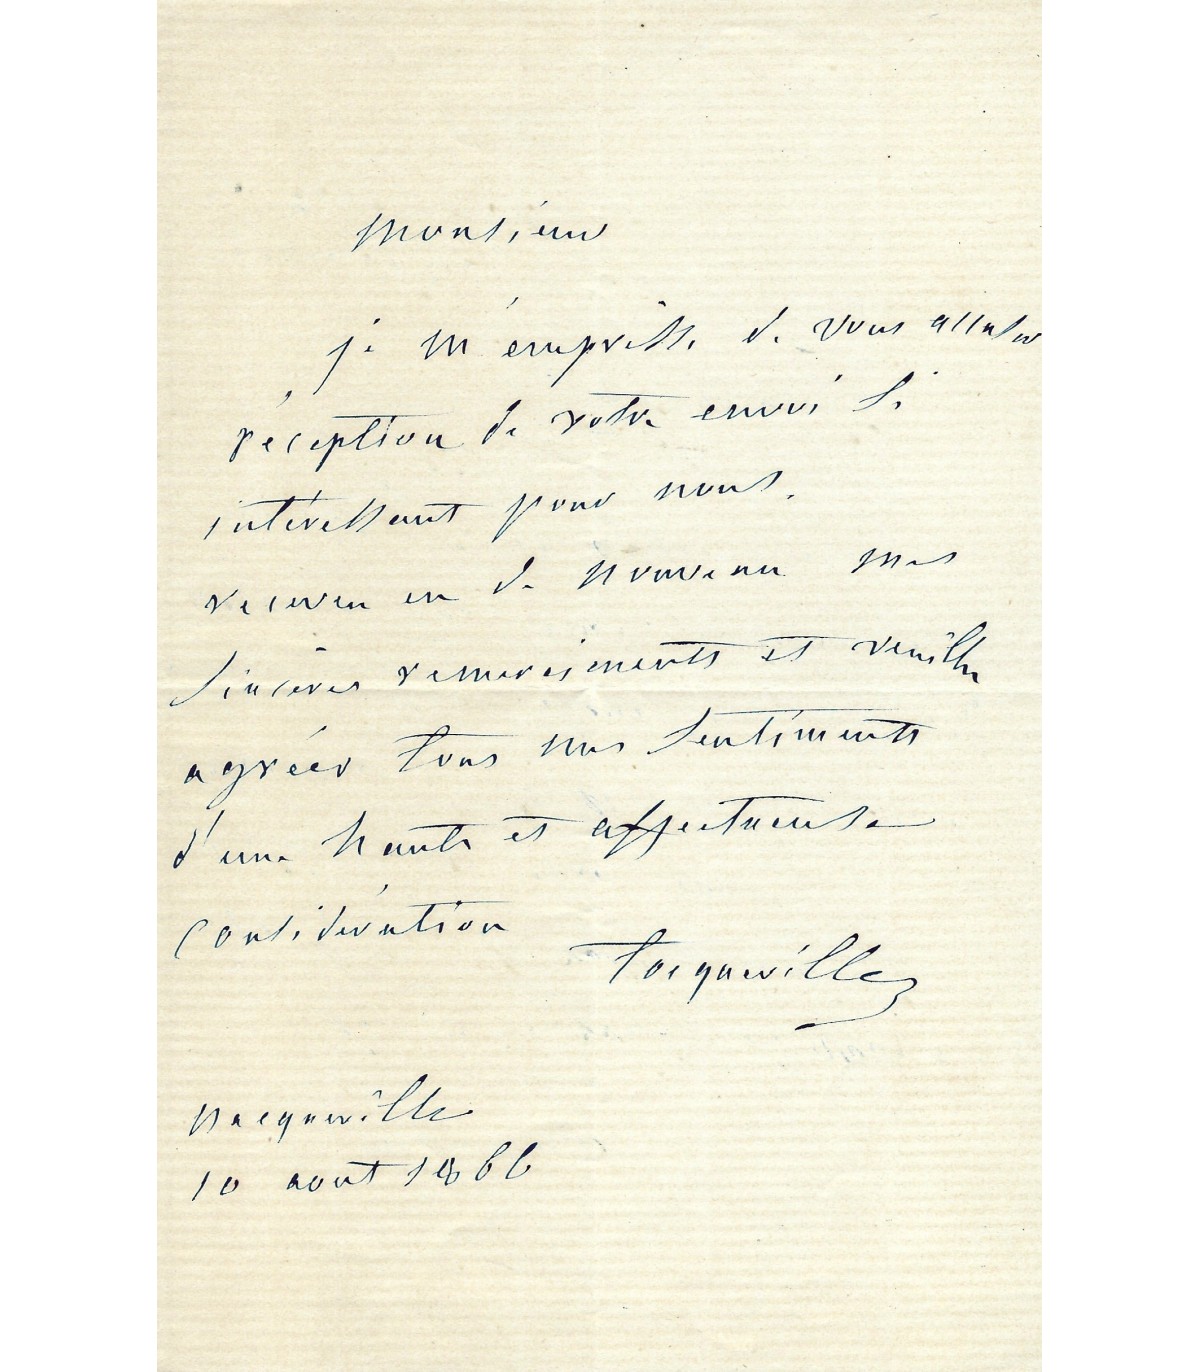 Monsieur
je m'empresse de vous accuser
réception de votre envoi si
intéressant pour nous.
recevez en de nouveau mes
sincères remerciments et veuillez
agréer tous mes sentiments
d'une haute et affectueuse
considération
Tocqueville
Nacqueville
10 aout 1866